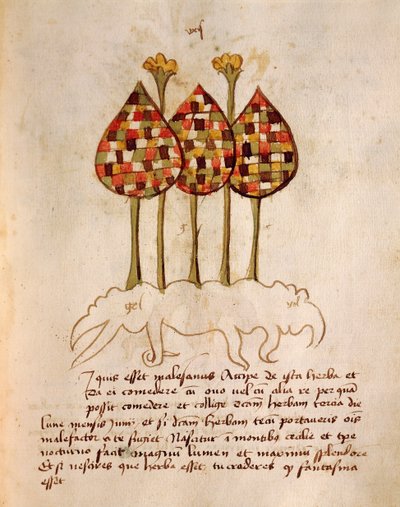 gel
I quis esset malesanus Accipe de ista herba et
da ei comedere cū ovo vel cū alia re per quā
possit comedere et collige dcām herbam tercia die
lune mensis Junij et si dcām herbam tecū portaveris ois
malefactor a te fugiet Nascitur ī montibus cecilie et tpe
nocturno facit magnū lumen et maximū splendorē
Et si nescires que herba esset tu crederes qp fantasma
esset